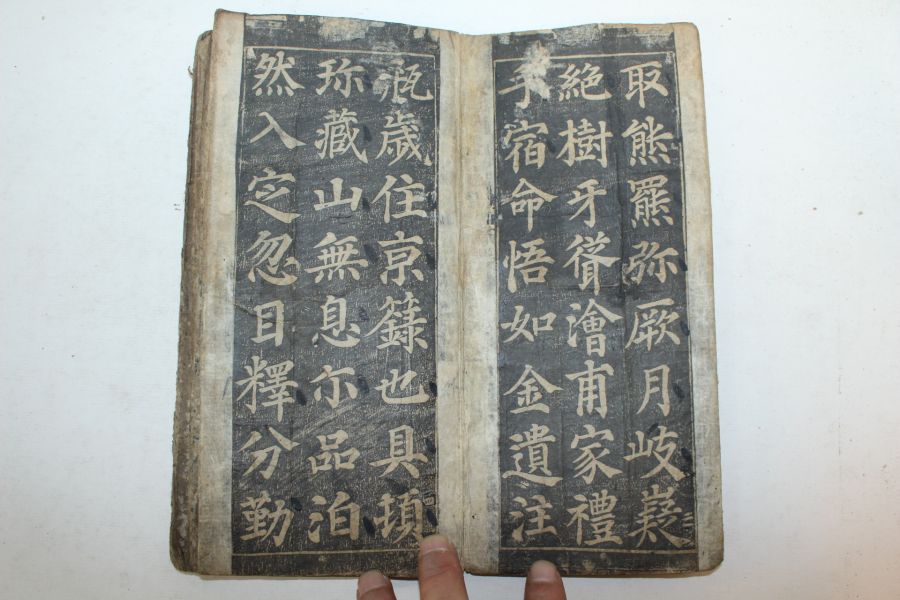 取熊羆弥厥月岐嶷
絶樹牙聳澮甫家禮
宿命悟如金遺注
瓶歳住京籙也具頓
珎藏山無息尒品泊
然入定忽目釋分勤